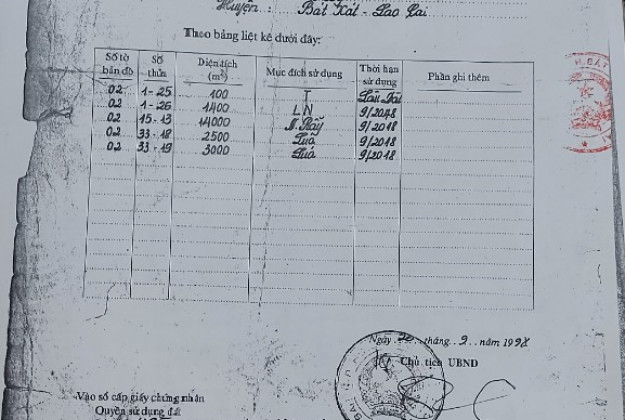 Huyện : Bát Xát - Lao Cai
Theo bảng liệt kê dưới đây:
Số tờ bản đồ Số thửa Diện tích (m²) Mục đích sử dụng Thời hạn sử dụng Phần ghi thêm
02 1-25 100 T Lâu dài
02 1-26 1400 LN 9/2048
02 15-13 14000 N. Rẫy 9/2018
02 33-18 2500 Luá 9/2018
02 33-19 3000 Luá 9/2018
Ngày 20 tháng 9 năm 1998
Chủ tịch UBND
Vào sổ cấp giấy chứng nhận
Quyền sử dụng đất